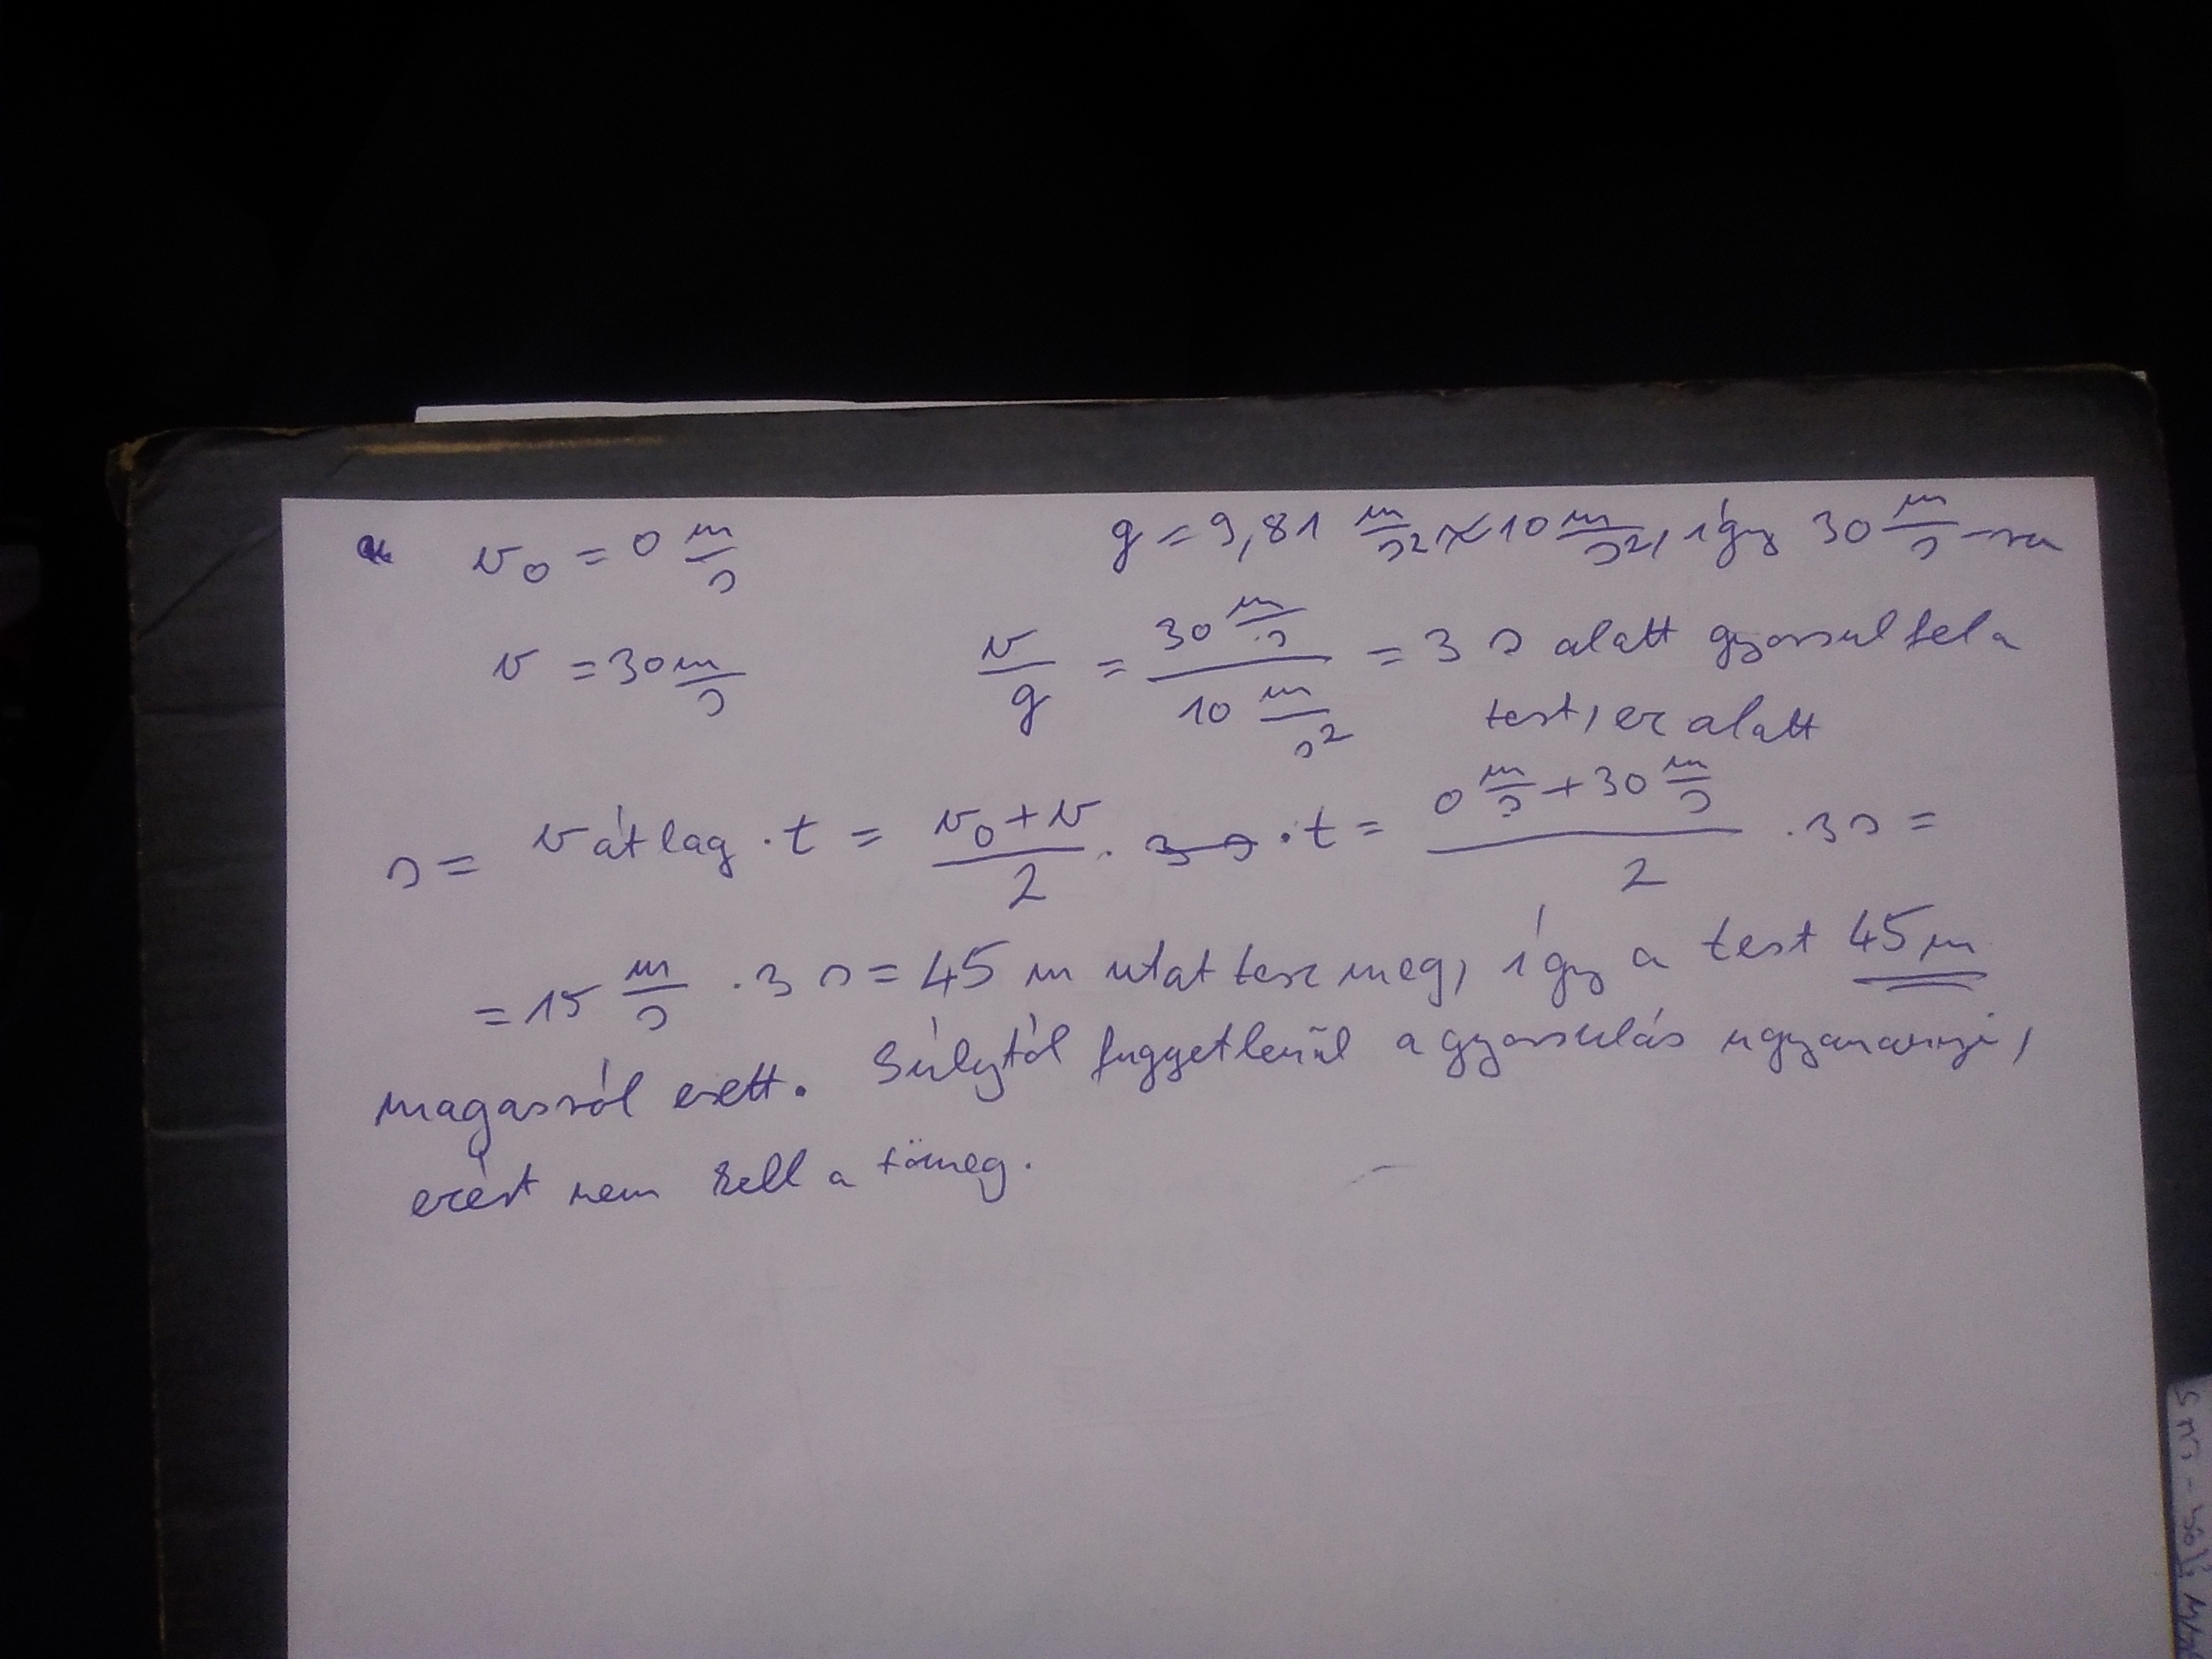 v₀ = 0 m/s g = 9,81 m/s² ≈ 10 m/s², így 30 m/s-ra
v = 30 m/s v/g = (30 m/s)/(10 m/s²) = 3 s alatt gyorsul fel a
test, ez alatt
s = v átlag · t = (v₀ + v)/2 · · t = (0 m/s + 30 m/s)/2 · 3 s =
= 15 m/s · 3 s = 45 m utat tesz meg, így a test 45 m
magasról esett. Súlytól függetlenül a gyorsulás ugyanannyi,
ezért nem kell a tömeg.